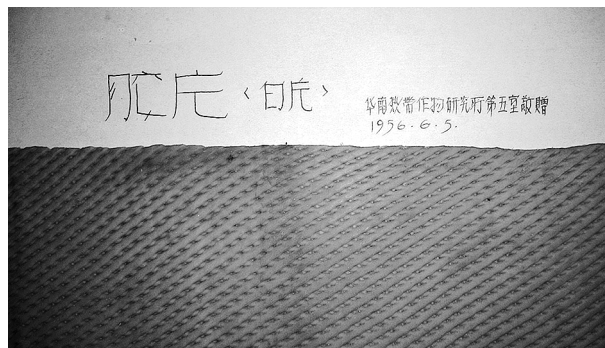 胶片〈白片〉
华南热带作物研究所第五室敬赠
1956.6.5.